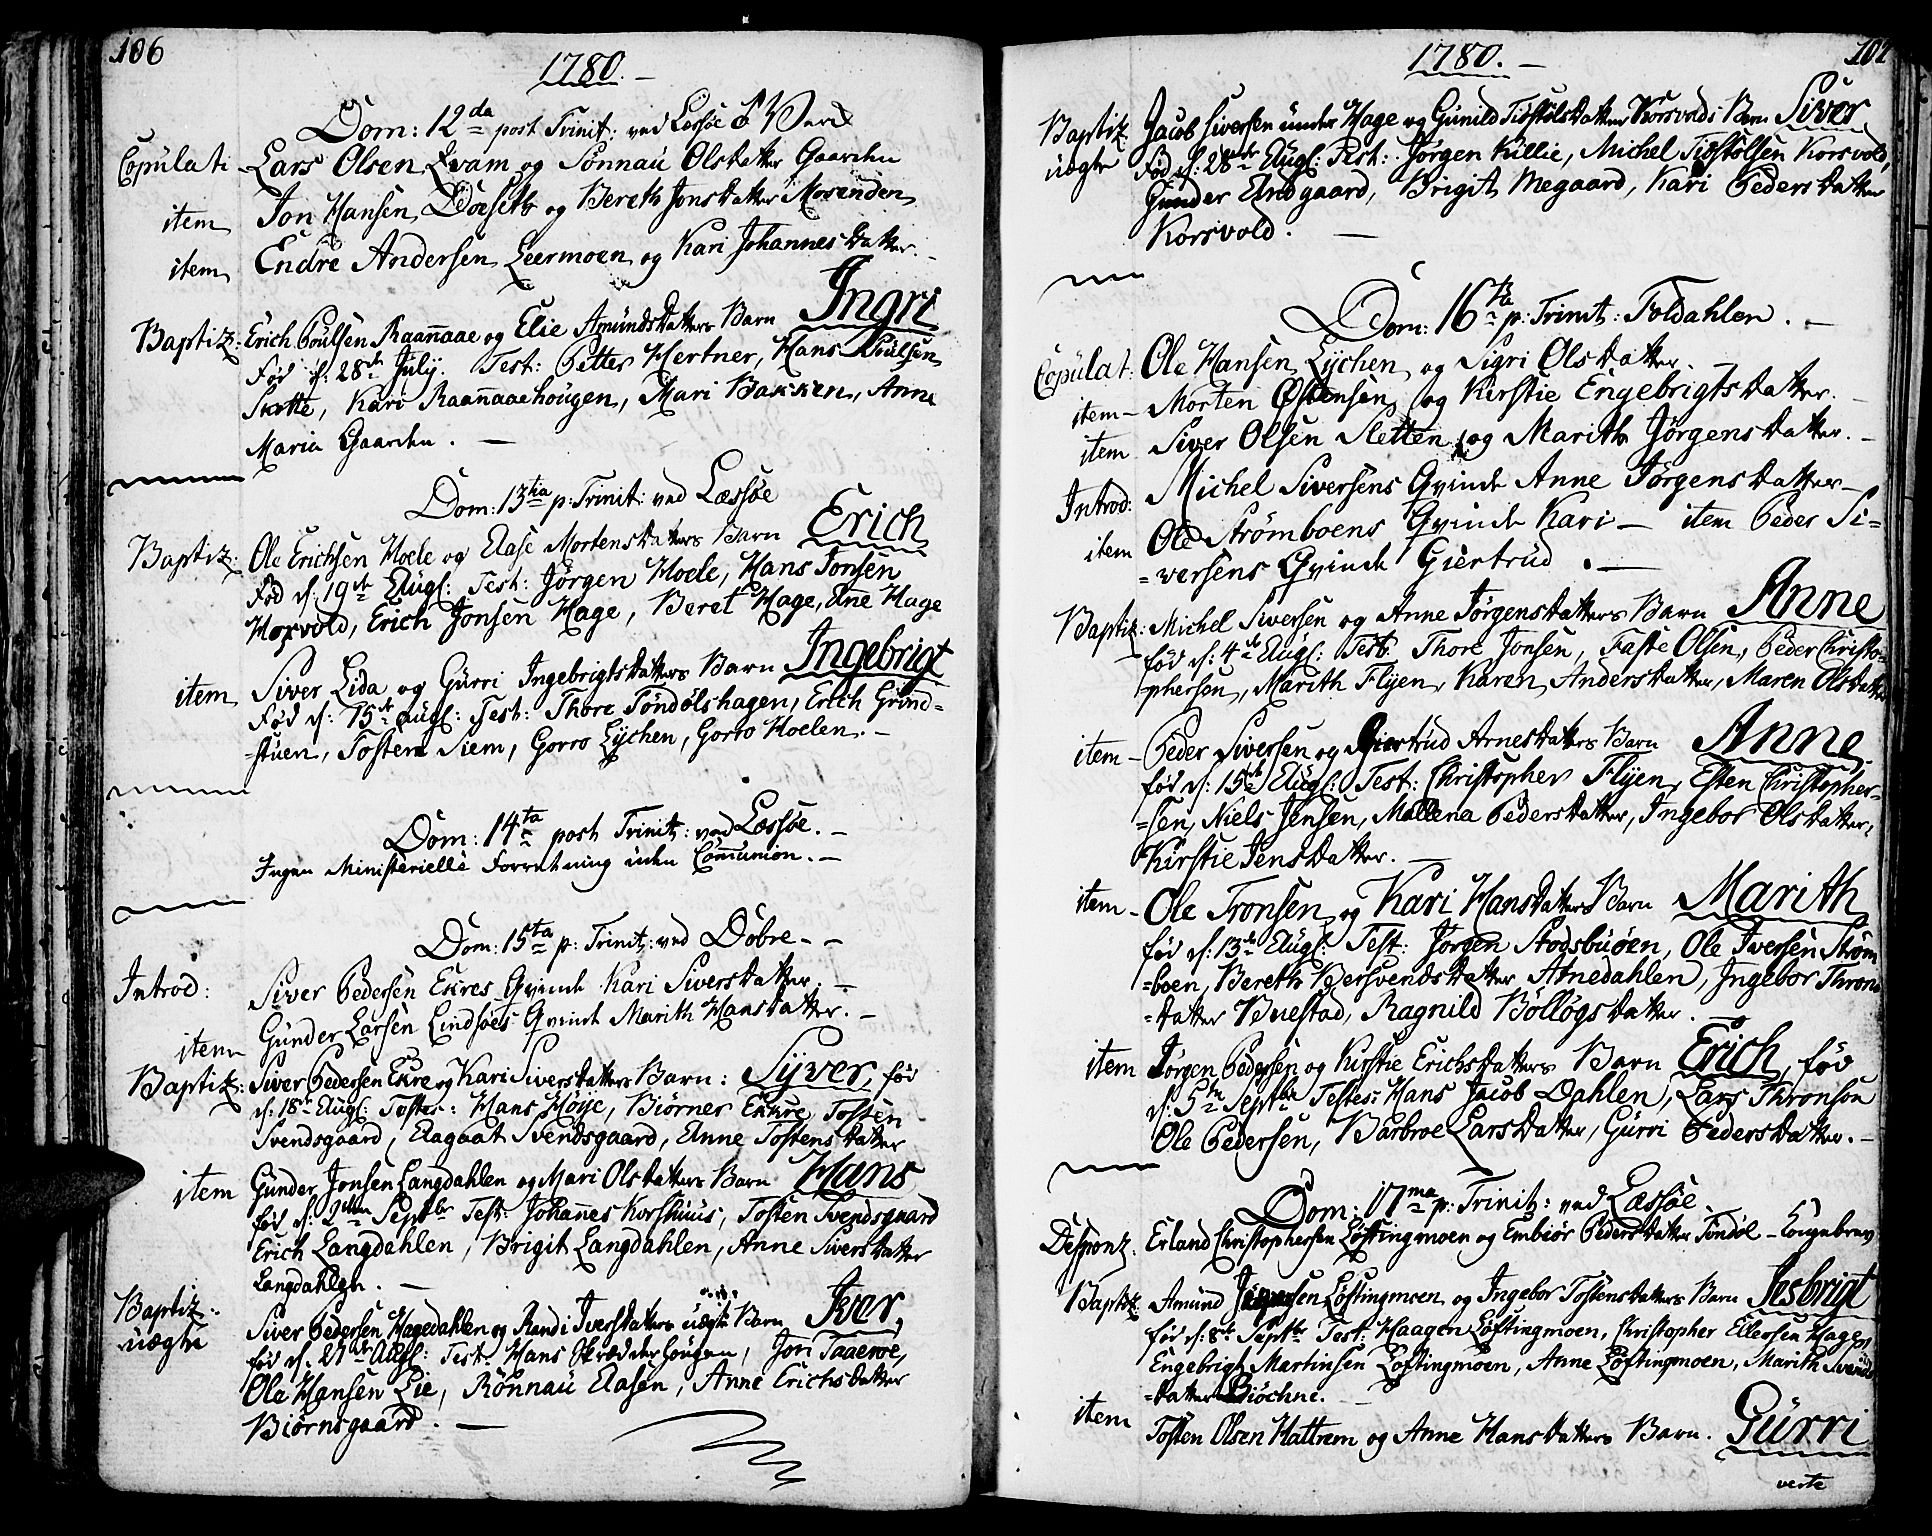 106
1780.
Dom: 12da post Trinit: ved Lessøe
Copulati Lars Olsen Qvam og Sønnau Olsdatter Gaarden
item Jon Hansen Doeseth og Bereth Jonsdatter Mosenden
item Endre Andersen Leermoen og Kari Johannesdatter.
Baptiz: Erich Poulsen Raanaae og Elie Amundsdatters Barn Ingri
Fød d: 28de July. Test: Petter Hertner, Hans Poulsen
Slette, Kari Raanaaehougen, Mari Bakken, Anne
Maria Gaarden.
Dom: 13tia p: Trinit: ved Læssøe
Baptiz: Ole Erichsen Hoele og Aase Mortensdatters Barn Erich
Fød d: 19de Augl: Test: Jørgen Hoele, Hans Jonsen
Horvold, Erich Jonsen Hage, Beret Hage, Ane Hage
item Siver Lida og Gurri Ingebrigtsdatters Barn Ingebrigt
Fød d: 15de Augl: Test: Thore Tøndølshagen, Erich Grind=
=stuen, Tosten Siem, Gorro Lychen, Gorro Hoelen.
Dom: 14ta post Trinit: ved Læssøe.
Ingen Ministerielle Forretning uden Communion.
Dom: 15ta p: Trinit: ved Dobre
Introd: Siver Pedersen Ekres Qvinde Kari Siversdatter.
item Gunder Larsen Lindsøes Qvinde Marith Hansdatter.
Baptiz: Siver Pedersen Ekre og Kari Siversdatters Barn: Syver, fød
d: 18de Augl: Testes: Hans Høije, Biørner Ekre, Tosten
Svendsgaard, Aagaat Svendsgaard, Anne Tostensdatter
item Gunder Jonsen Langdahlen og Mari Olsdatters Barn Hans
fød d: 2den Septbr Test: Johannes Korshuus, Tosten Svendsgaard
Erich Langdahlen, Brigit Langdahlen, Anne Siversdatter
Langdahlen.
Baptiz: Siver Pedersen Hagedahlen og Randi Iversdatters uægte Barn Iver,
uægte fød d: 27de Augl: Test: Hans Skrædderhougen, Jon Taaeroe,
Ole Hansen Lie, Rønnau Aasen, Anne Erichsdatter
Biørnsgaard.
107
1780.
Baptiz Jacob Siversen under Hage og Gunild Tiøstølsdatter Korsvolds Barn Siver
uægte Fød d: 28de Augl: Test: Jørgen Killie, Michel Tiøstølsen Korsvold,
Gunder Andgaard, Brigit Megaard, Kari Pedersdatter
Korsvold.
Dom: 16ta p: Trinit: Foldahlen.
Copulat: Ole Hansen Lychen og Sigri Olsdatter
item Morten Østensen og Kirstie Engebrigtsdatter.
item Siver Olsen Sletten og Marith Jørgensdatter.
Introd: Michel Siversens Qvinde Anne Jørgensdatter
item Ole Strømboens Qvinde Kari item Peder Si=
=versens Qvinde Giertrud.
Baptiz: Michel Siversen og Anne Jørgensdatters Barn Anne
fød d: 4de Augl: Test: Thore Jonsen, Faste Olsen, Peder Christo=
phersen, Marith Flyen, Karen Andersdatter, Maren Olsdatter
item Peder Siversen og Giertrud Arnesdatters Barn Anne
fød d: 15de Augl: Test: Christopher Flyen, Esten Christopher=
=sen, Niels Jensen, Mallena Pedersdatter, Ingebor Olsdatter,
Kirstie Jensdatter.
item Ole Tronsen og Kari Hansdatters Barn Marith
fød d: 13de Augl: Test: Jørgen Stodsbuøen, Ole Iversen Strøm
=boen, Bereth Bersvendsdatter Atnedahlen, Ingebor Thrond
=datter Buestad, Ragnild Bølløgsdatter.
item Jørgen Pedersen og Kirstie Erichsdatters Barn Erich, fød
d: 5te Septbr Testes: Hans Jacob Dahlen, Lars Thronson
Ole Pedersen, Barbroe Larsdatter, Gurri Pedersdatter.
Dom: 17ma p: Trinit: ved Læssøe.
Desponz. Erland Christophersen Løftingmoen og Embiør Pedersdatter Tøndøl Kongebrev
Baptiz: Amund Løftingmoen og Ingebor Tostensdatters Barn Jesbrigt
fød d: 8de Septbr Test: Haagen Løftingmoen, Christopher Ellersen Hagen
Engebrigt Martinsen Løftingmoen, Anne Løftingmoen, Marith Svends
=datter Biøchne.
item Tosten Olsen Hattrem og Anne Hansdatters Barn. Gurri
verte